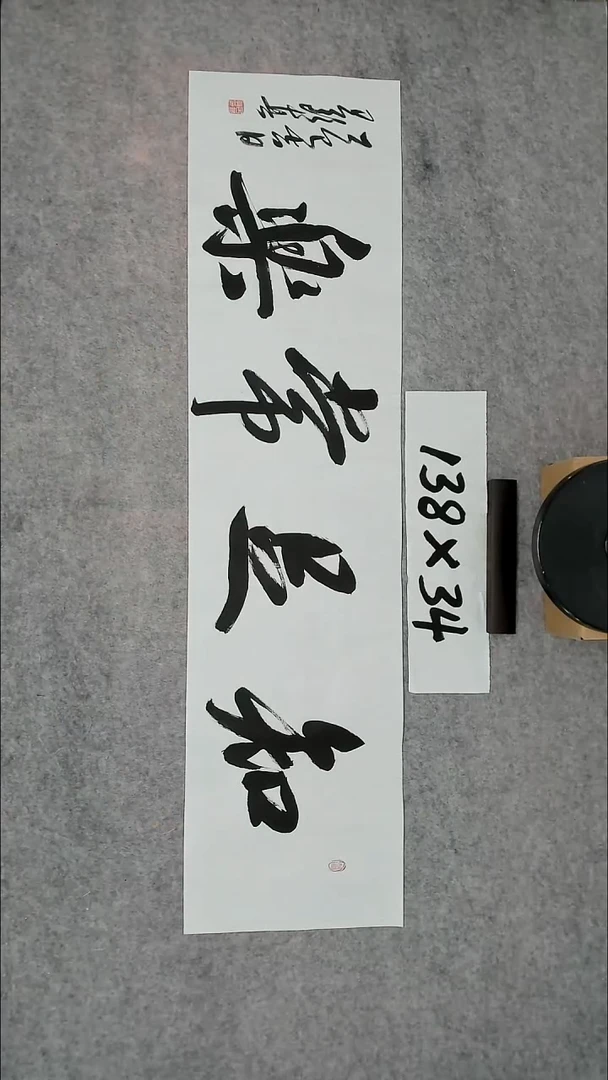 知足常樂
138×34